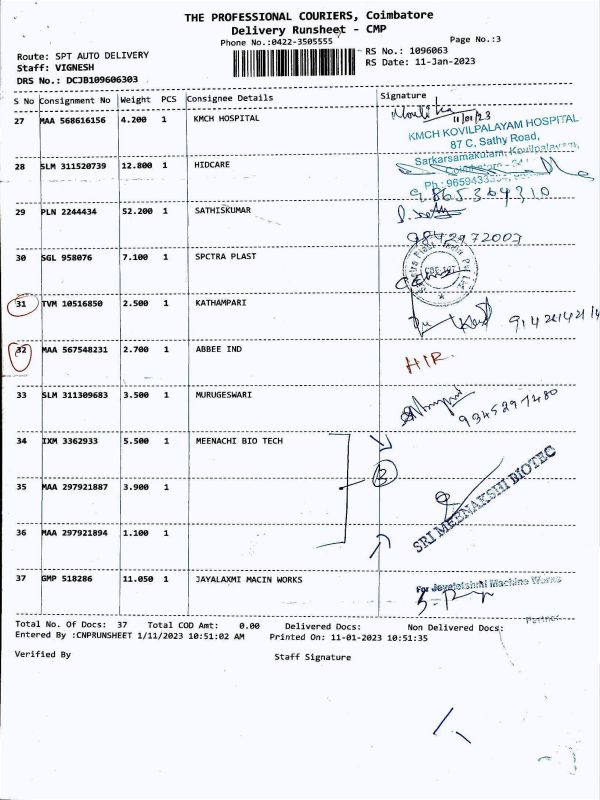 THE PROFESSIONAL COURIERS, Coimbatore
Delivery Runsheet - CMP
Phone No.:0422-3505555
Page No.:3
Route: SPT AUTO DELIVERY
RS No.: 1096063
Staff: VIGNESH
RS Date: 11-Jan-2023
DRS No.: DCJB109606303
S No Consignment No Weight PCS Consignee Details Signature
27 MAA 568616156 4.200 1 KMCH HOSPITAL
11/01/23
KMCH KOVILPALAYAM HOSPITAL
87 C, Sathy Road,
Sarkarsamakulam, Kovilpalayam,
28 SLM 311520739 12.800 1 HIDCARE
9865364310
29 PLN 2244434 52.200 1 SATHISKUMAR
9842972003
30 SGL 958076 7.100 1 SPCTRA PLAST
31 TVM 10516850 2.500 1 KATHAMPARI
32 MAA 567548231 2.700 1 ABBEE IND
HIR.
33 SLM 311309683 3.500 1 MURUGESWARI
9345297480
34 IXM 3362933 5.500 1 MEENACHI BIO TECH
3
35 MAA 297921887 3.900 1
SRI MEENAKSHI BIOTEC
36 MAA 297921894 1.100 1
37 GMP 518286 11.050 1 JAYALAXMI MACIN WORKS
For Jayalakshmi Machine Works
Partner
Total No. Of Docs: 37 Total COD Amt: 0.00 Delivered Docs: Non Delivered Docs:
Entered By :CNPRUNSHEET 1/11/2023 10:51:02 AM Printed On: 11-01-2023 10:51:35
Verified By Staff Signature